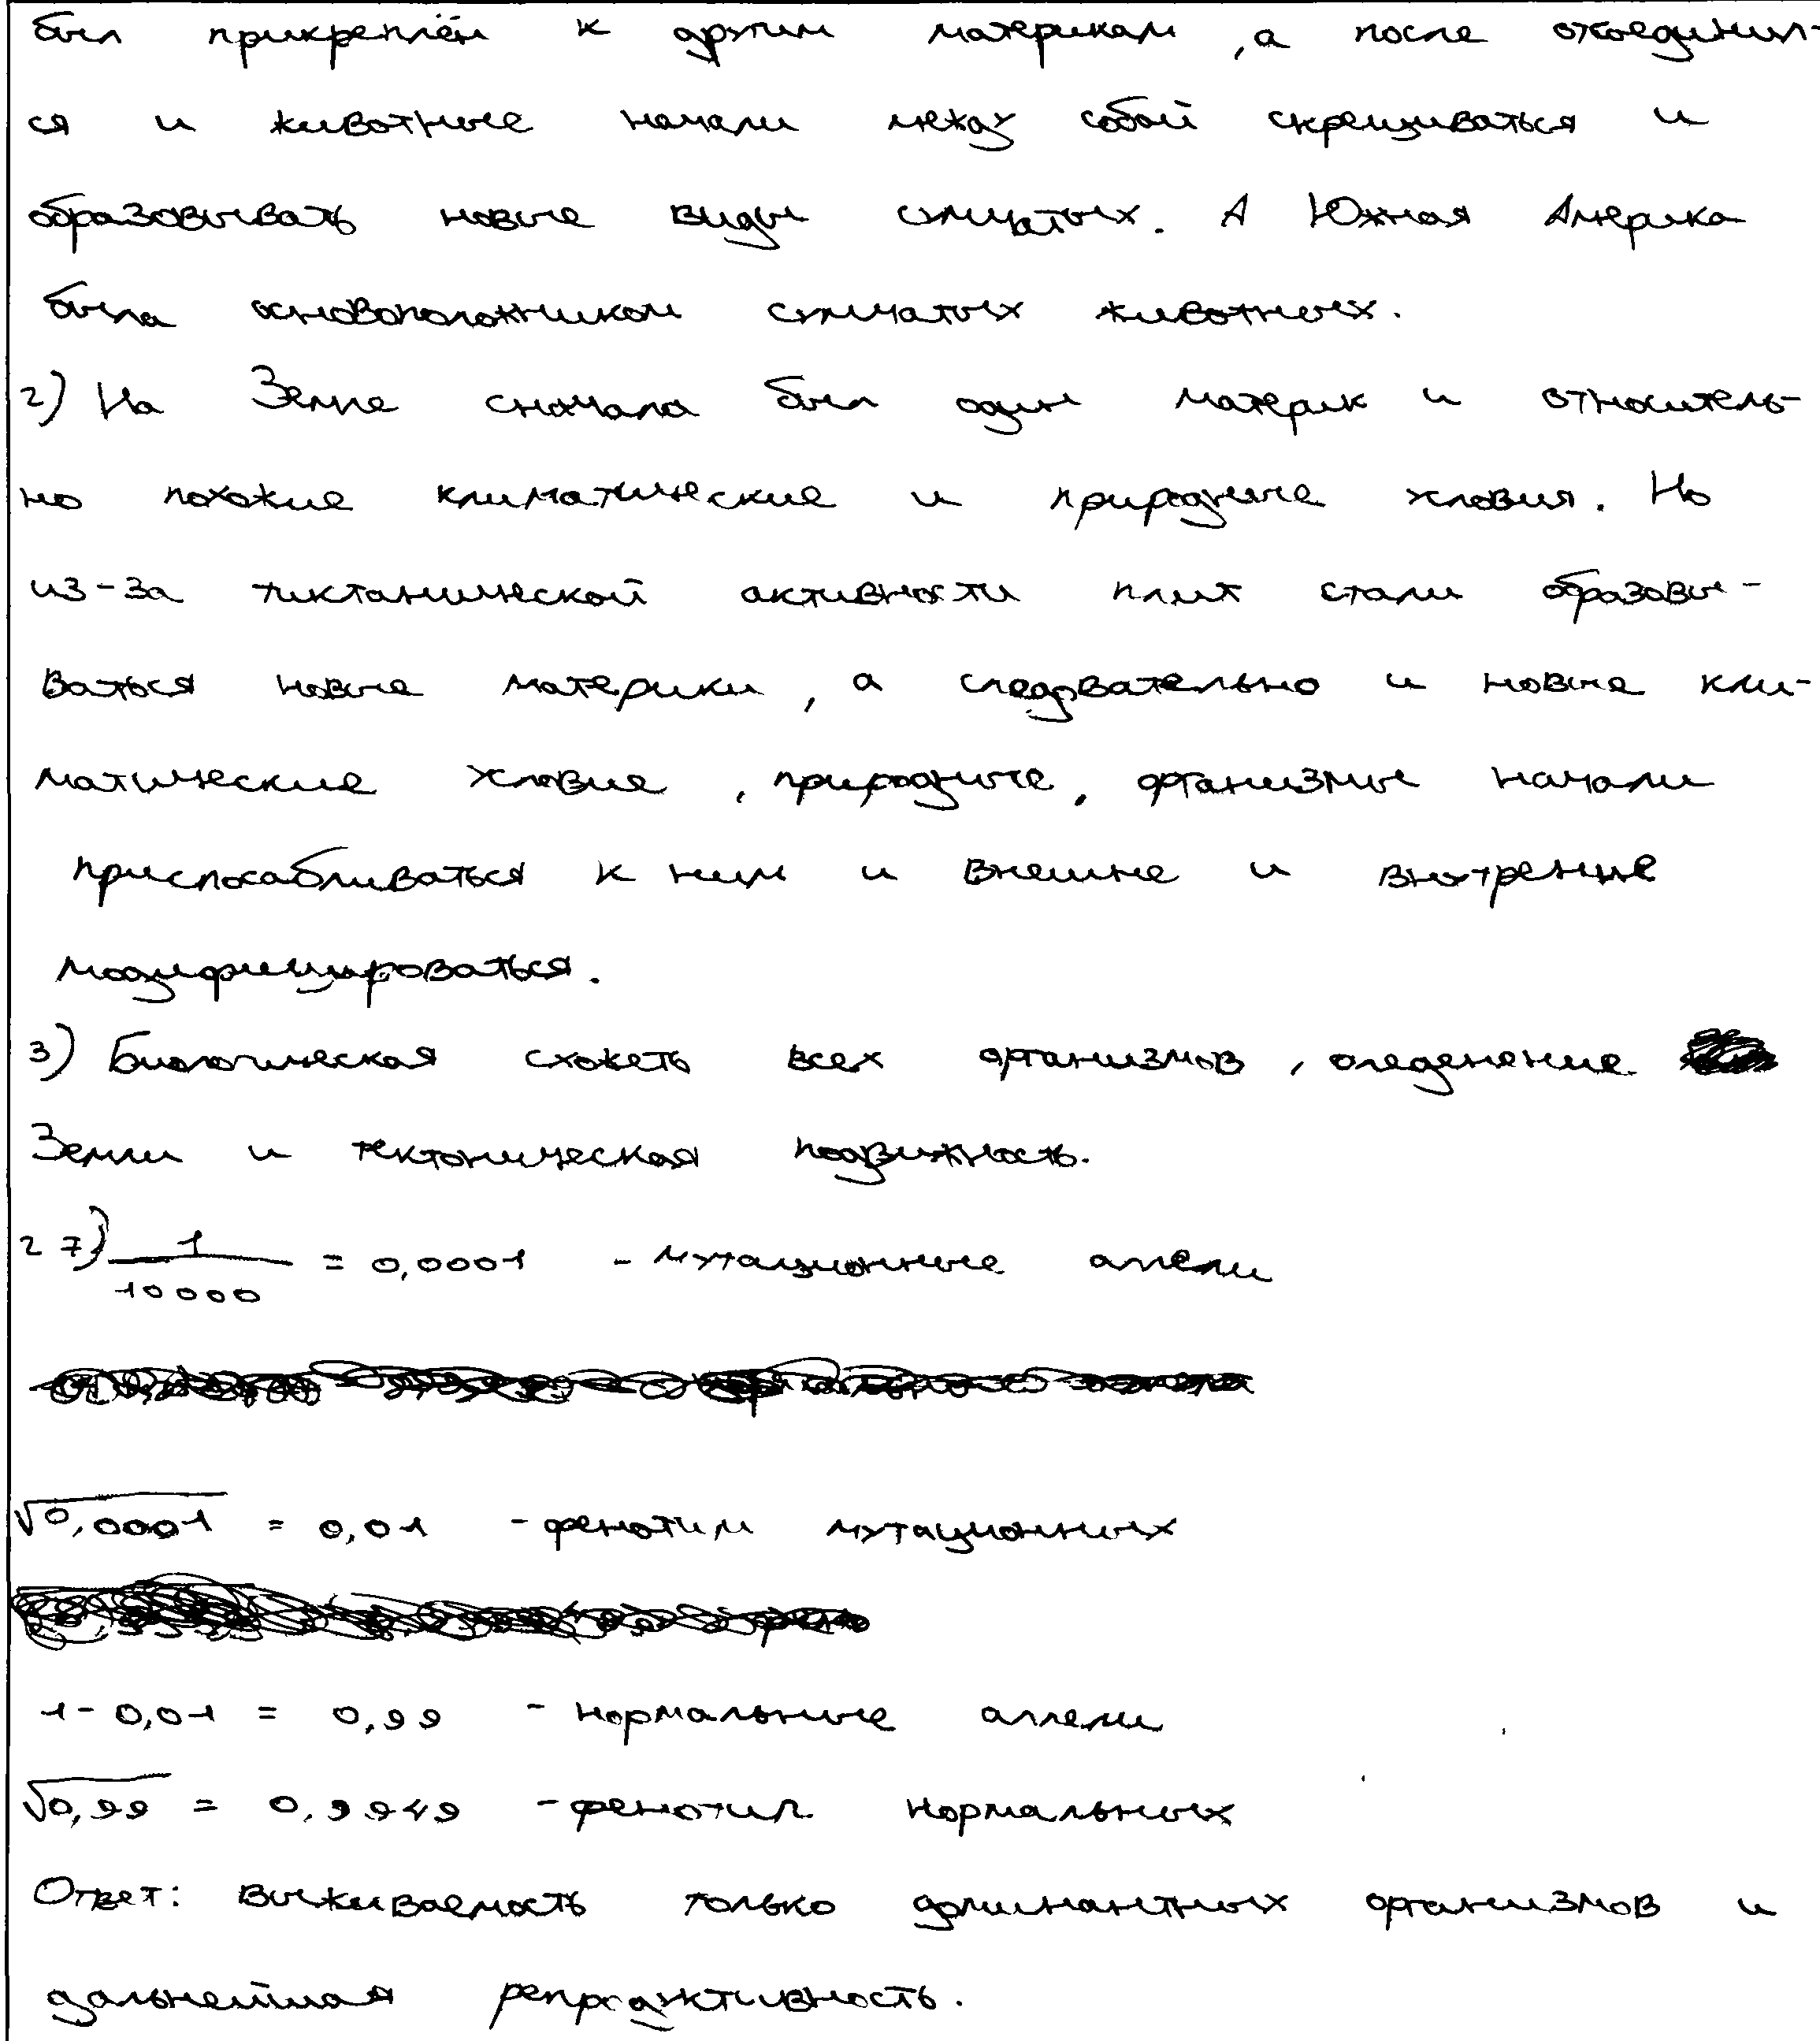 был прикреплён к другим материкам, а после отсоединил-
ся и животные начали между собой скрещиваться и
образовывать новые виды сумчатых. А Южная Америка
была основоположником сумчатых животных.
2) На Земле сначала был один материк и относитель-
но похожие климатические и природные условия. Но
из-за тиктанической активности плит стали образовы-
ваться новые материки, а следовательно и новые кли-
матические условие, природные, организмы начали
приспосабливаться к ним и внешне и внутренне
модифицироваться.
3) Биологическая схожеть всех организмов, оледенение
Земли и тектоническая подвижность.
27) 1/10000 = 0,0001 - мутационные аллели
√0,0001 = 0,01 - фенотип мутационных
1 - 0,01 = 0,99 - нормальные аллели
√0,99 = 0,9949 - фенотип нормальных
Ответ: Выживаемость только доминантных организмов и
дальнейшая репродуктивность.